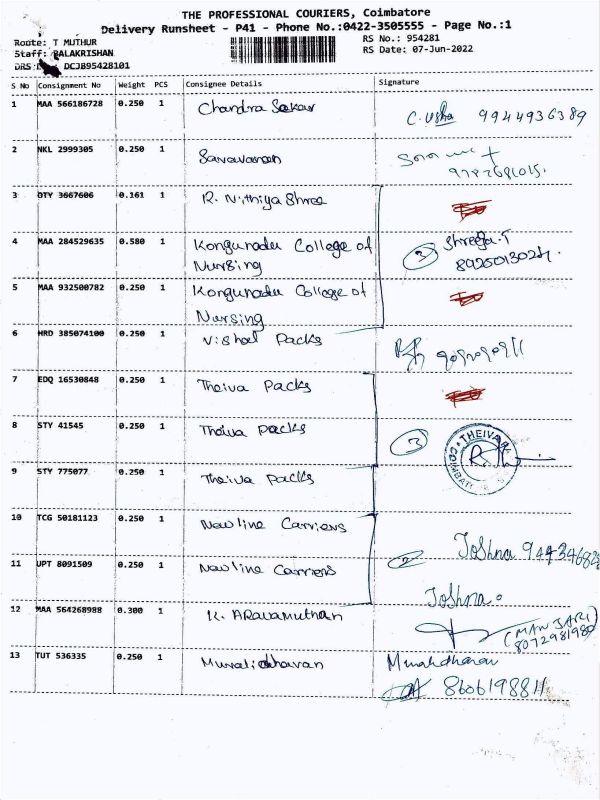 THE PROFESSIONAL COURIERS, Coimbatore
Delivery Runsheet - P41 - Phone No.:0422-3505555 - Page No.:1
Route: T MUTHUR
RS No.: 954281
Staff: BALAKRISHAN
RS Date: 07-Jun-2022
DRS DCJB95428101
S No Consignment No Weight PCS Consignee Details Signature
1 MAA 566186728 0.250 1 Chandra Sekar C. Usha 9944936389
2 NKL 2999305 0.250 1 Saravanan
3 OTY 3667606 0.161 1 R. Nithiya Shree
4 MAA 284529635 0.580 1 Kongunadu College of Nursing 3 Shreeja.T
5 MAA 932500782 0.250 1 Kongunadu College of Nursing
6 HRD 385074100 0.250 1 Vishal Packs
7 EDQ 16530848 0.250 1 Theiva Packs
8 STY 41545 0.250 1 Theiva Packs 3 THEIVA
9 STY 775077 0.250 1 Theiva Packs
10 TCG 50181123 0.250 1 New line Carriers
11 UPT 8091509 0.250 1 New line Carriers 2 Joshna
Joshna.
12 MAA 564268988 0.300 1 K. Aravamuthan (MANJARI)
8072981980
13 TUT 536335 0.250 1 Muralidharan Muralidharan
8606198811